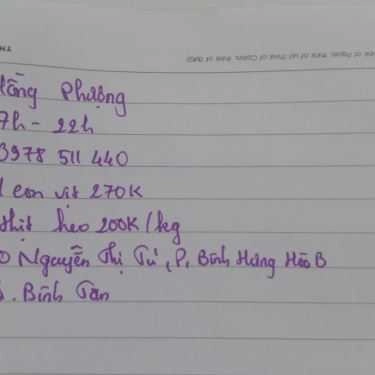 Hằng Phượng
7h - 22h
3978 511 440
1 con vịt 270K
thịt heo 200K/kg
Nguyễn Thị Tú, P. Bình Hưng Hòa B
. Bình Tân